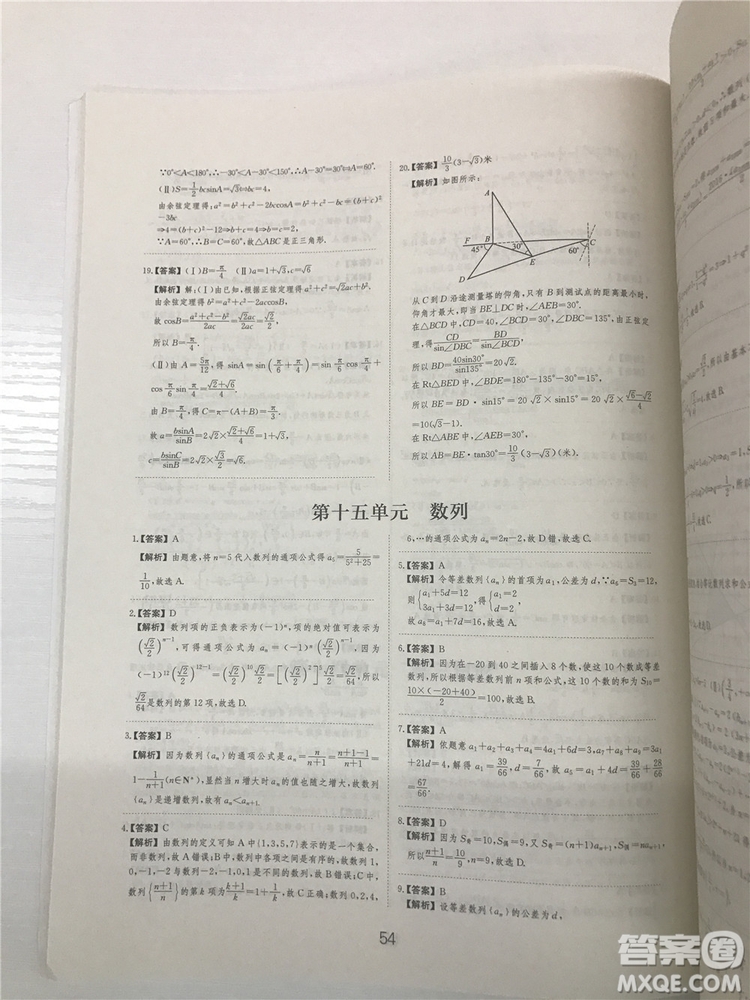 ∵0°<A<180°,∴-30°<A-30°<150°,∴A-30°=30°⇒A=60°.
(Ⅱ)S=\frac{1}{2}bcsinA=√3⇔bc=4,
由余弦定理得:a²=b²+c²-2bccosA=b²+c²-bc=(b+c)²
-3bc
⇒4=(b+c)²-12⇒b+c=4⇒b=c=2.
∵A=60°,∴B=C=60°,故△ABC是正三角形.
19.【答案】(Ⅰ)B=\frac{π}{4} (Ⅱ)a=1+√3,c=√6
【解析】解:(Ⅰ)由已知,根据正弦定理得a²+c²-√2ac=b²,
由余弦定理得b²=a²+c²-2accosB.
故cosB=\frac{a²+c²-b²}{2ac}=\frac{√2ac}{2ac}=\frac{√2}{2},
所以B=\frac{π}{4}.
(Ⅱ)由A=\frac{5π}{12},得sinA=sin(\frac{π}{6}+\frac{π}{4})=sin\frac{π}{6}cos
\frac{π}{4}+cos\frac{π}{6}sin\frac{π}{4}=\frac{√2+√6}{4}.
由B=\frac{π}{4},得C=π-(A+B)=\frac{π}{3}.
故a=\frac{bsinA}{sinB}=2√2×\frac{√2+√6}{4}=1+√3,
c=\frac{bsinC}{sinB}=2√2×\frac{√3}{2}=√6.
20.【答案】\frac{10}{3}(3-√3)米
【解析】如图所示:
A
F 45° B 30° 60° C
E
D
从C到D沿途测量塔的仰角,只有B到测试点的距离最小时,
仰角才最大,即当BE⊥DC时,∠AEB=30°.
在△BCD中,CD=40,∠BCD=30°,∠DBC=135°,由正弦定
理得,\frac{CD}{sin∠DBC}=\frac{BD}{sin∠BCD},
所以BD=\frac{40sin30°}{sin135°}=20√2.
在Rt△BED中,∠BDE=180°-135°-30°=15°,
所以BE=BD·sin15°=20√2×sin15°=20√2×\frac{√6-√2}{4}
=10(√3-1).
在Rt△ABE中,∠AEB=30°,
所以AB=BE·tan30°=\frac{10}{3}(3-√3)(米).
第十五单元 数列
1.【答案】A
【解析】由题意,将n=5代入数列的通项公式得a₅=\frac{5}{5²+25}=
\frac{1}{10},故选A.
2.【答案】D
【解析】数列项的正负表示为(-1)ⁿ,项的绝对值可表示为
(\frac{√2}{2})ⁿ⁻¹,可得通项公式aₙ=(-1)ⁿ(\frac{√2}{2})ⁿ⁻¹,因为
(-1)¹²(\frac{√2}{2})¹²⁻¹=(\frac{√2}{2})¹¹=[(\frac{√2}{2})²]⁵\frac{√2}{2}=\frac{√2}{64},所以
\frac{√2}{64}是数列的第12项,故选D.
3.【答案】B
【解析】因为数列{aₙ}的通项公式是aₙ=\frac{n}{n+1}=\frac{n+1-1}{n+1}=
1-\frac{1}{n+1}(n∈N*),显然当n增大时,aₙ的值也随之增大,故数
列是递增数列,故有aₙ<aₙ₊₁.
4.【答案】C
【解析】由数列的定义可知A中{1,3,5,7}表示的是一个集合,
而非数列,故A错误;B中,数列中各项之间是有序的,故数列1,
0,-1,-2与数列-2,-1,0,1是不同的数列,故B错误;C中,
数列{\frac{n+1}{n}}的第k项为\frac{k+1}{k}=1+\frac{1}{k},故C正确;数列0,2,4,
6,…的通项公式为aₙ=2n-2,故D错,故选C.
5.【答案】A
【解析】令等差数列{aₙ}的首项为a₁,公差为d,∵a₆=S₃=12,
则{a₁+5d=12 3a₁+3d=12,得{a₁=2 d=2.
故a₈=a₁+7d=16,故选A.
6.【答案】B
【解析】因为在-20到40之间插入8个数,使这10个数成等差
数列,所以根据等差数列前n项和公式,这10个数的和为S₁₀=
\frac{10×(-20+40)}{2}=100,故选B.
7.【答案】A
【解析】依题意a₁+a₂+a₃+a₄=4a₁+6d=3,a₇+a₈+a₉=3a₁
+21d=4,解得a₁=\frac{39}{66},d=\frac{7}{66},故a₅=a₁+4d=\frac{39}{66}+\frac{28}{66}=
\frac{67}{66}.故选A.
8.【答案】D
【解析】因为S奇=10,S偶=9,又S奇=(n+1)aₙ₊₁,S偶=naₙ₊₁,
所以\frac{n+1}{n}=\frac{10}{9},n=9,故选D.
9.【答案】B
【解析】设等差数列{aₙ}的公差为d,
54
答案圈
MXQE.COM